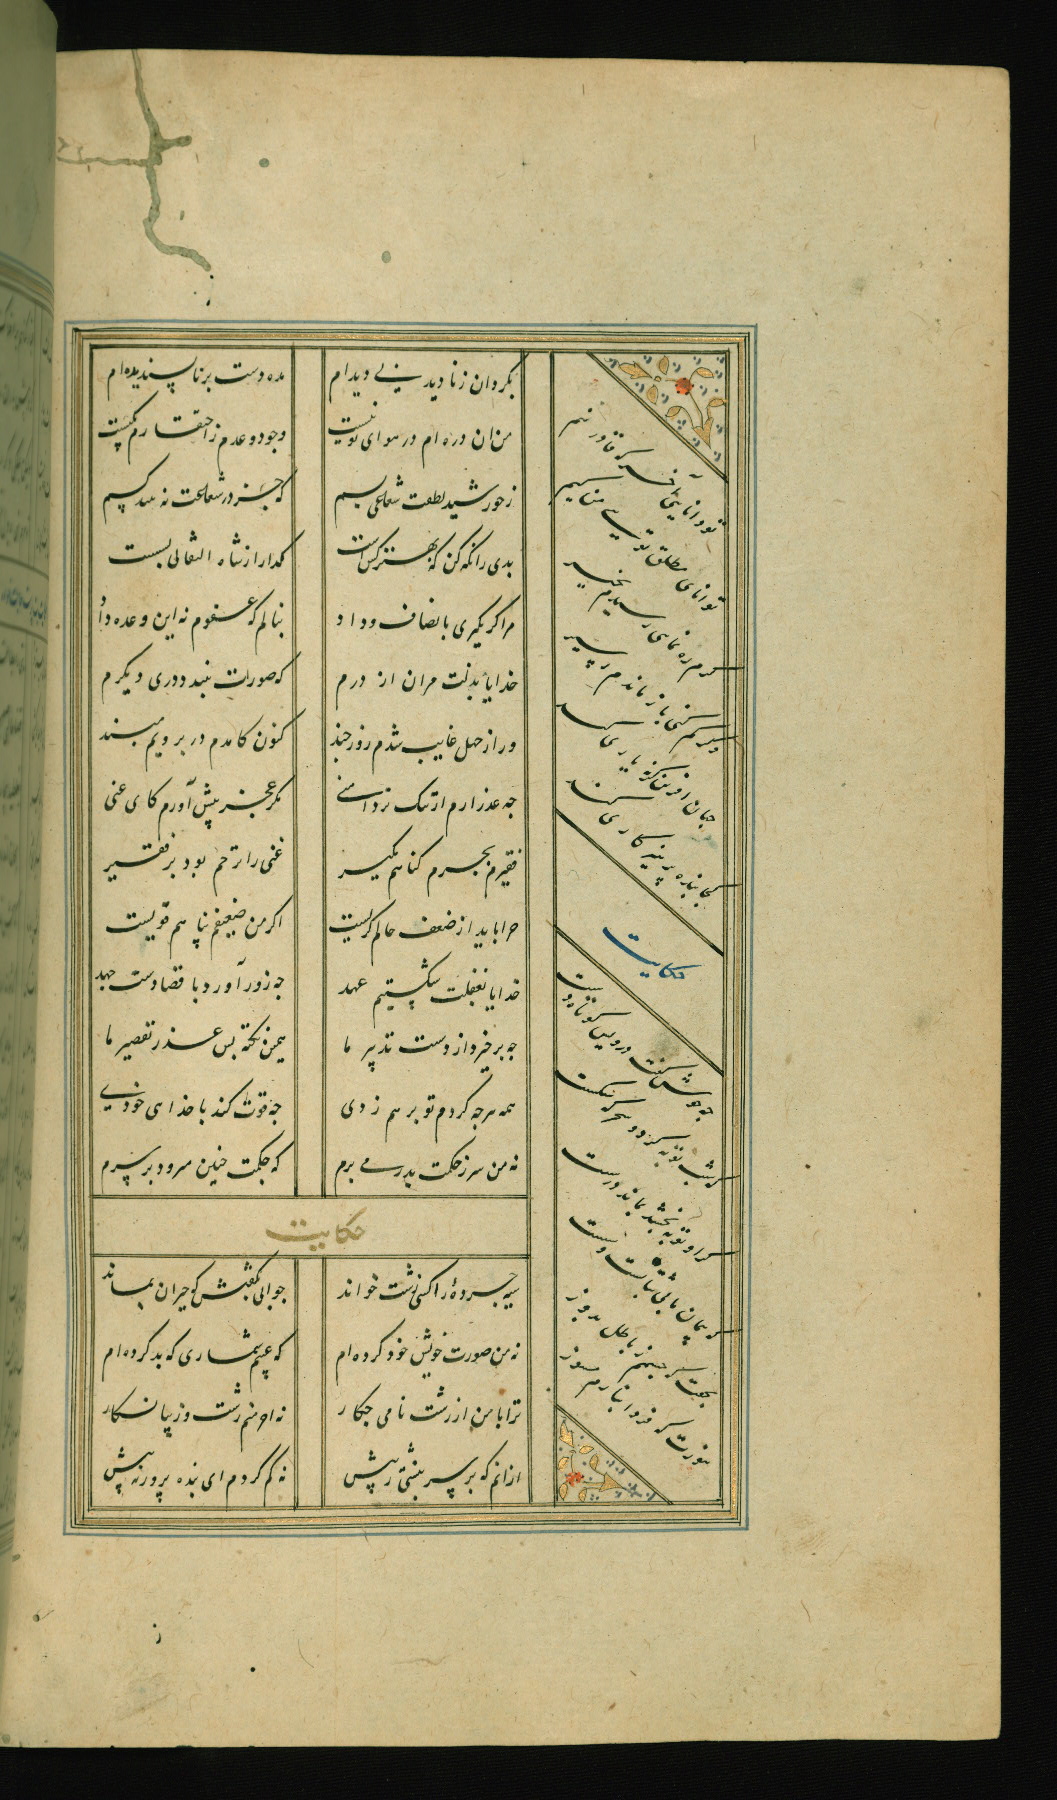 بگردان ز نادیدنی دیده‌ام مده دست بر ناپسندیده‌ام
من آن ذره‌ام در هوای تو نیست وجود و عدم ز احتقارم یکیست
ز خورشید لطفت شعاعی بسم که جز در شعاعت نه بیند کسم
بدی را نگه کن که بهتر کس است گدا را ز شاه التفاتی بسست
مرا گر بگیری بانصاف و داد بنالم که عفوم نه این وعده داد
خدایا بذلت مران از درم که صورت نبندد دری دیگرم
ور از جهل غایب شدم روز چند کنون کامدم در برویم مبند
چه عذر آرم از ننگ تردامنی مگر عجز پیش آورم کای غنی
فقیرم بجرم گناهم مگیر غنی را ترحم بود بر فقیر
چرا باید از ضعف حالم گریست اگر من ضعیفم پناهم قویست
خدایا بغفلت شکستیم عهد چه زور آورد با قضا دست جهد
چه برخیزد از دست تدبیر ما همین نکته بس عذر تقصیر ما
همه هرچه کردم تو بر هم زدی چه قوت کند با خدایی خودی
نه من سر ز حکمت بدر می برم که حکمت چنین میرود بر سرم
حکایت
سیه چرده‌ٔ را کسی زشت خواند جوابی بگفتش که حیران بماند
نه من صورت خویش خود کرده‌ام که عیبم شماری که بد کرده‌ام
ترا با من ار زشت نامی چه کار نه آخر منم زشت و زیبا نگار
از آنم که بر سر نبشتی ز پیش نه کم کردم ای بنده پرور نه بیش
تو دانایی آخر که قادر نیم
توانای مطلق تویی من کیم
گرم ره نمایی رسیدم بخیر
وگر گم کنی باز ماندم ز سیر
جهان آفرین گر نه یاری کند
کجا بنده پرهیزکاری کند
حکایت
چه خوش گفت درویش کوتاه دست
که شب توبه کرد و سحرگه شکست
گر او توبه بخشد بماند درست
که پیمان ما بی ثباتست و سست
بحقت که چشمم ز باطل بدوز
بنورت که فردا بنارم مسوز